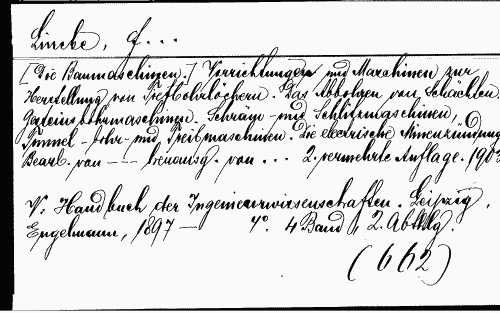 Lincke, f...
[Die Baumaschinen.] Vorrichtungen und Maschinen zur
Herstellung von Tiefbohrlöchern. Das Abbohren von Schächten.
Gesteinsbohrmaschinen. Schräm- und Schlitzmaschinen,
Tunnel-bohr- und Treibmaschinen. Die electrische Minenzündung
Bearb. von --- herausg. von ... 2. vermehrte Auflage. 190
V. Handbuch der Ingenieurwissenschaften. Leipzig,
Engelmann, 1897 — 4º. 4 Band, 2. Abthlg.
(662)